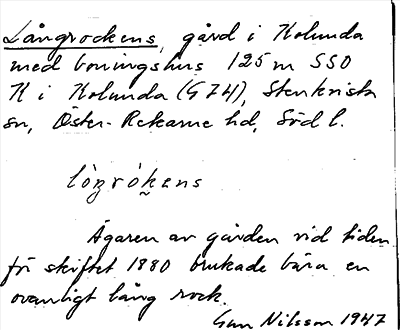 Långrockens, gård i Kolunda
med boningshus 125 m SSO
K i Kolunda (G74), Stenkvista
sn, Öster-Rekarne hd, Södl.
lòŋrókens
Ägaren av gården vid tiden
för skiftet 1880 brukade bära en
ovanligt lång rock.
Gun Nilsson 1947